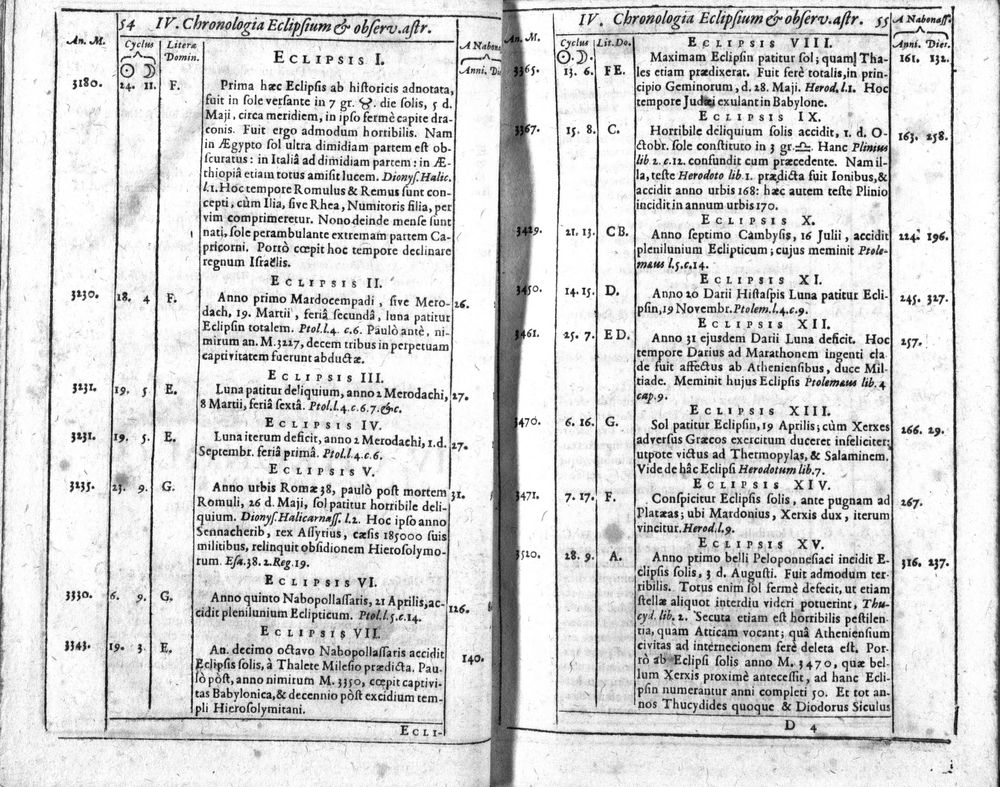 54 IV. Chronologia Eclipsium & observ. astr.
An. M.
Cyclus
☉ ☽
Literæ
Domin.
A Nabonas
Anni. Dies
ECLIPSIS I.
3180. 24. 11. F.
Prima hæc Eclipsis ab historicis adnotata,
fuit in sole versante in 7 gr. ♉. die solis, 5 d.
Maji, circa meridiem, in ipso fermè capite dra-
conis. Fuit ergo admodum horribilis. Nam
in Ægypto sol ultra dimidiam partem est ob-
scuratus: in Italiâ ad dimidiam partem: in Æ-
thiopiâ etiam totus amisit lucem. Dionys. Halic.
l.1. Hoc tempore Romulus & Remus sunt con-
cepti, cùm Ilia, sive Rhea, Numitoris filia, per
vim comprimeretur. Nono deinde mense sunt
nati, sole perambulante extremam partem Ca-
pricorni. Porrò cœpit hoc tempore declinare
regnum Israëlis.
ECLIPSIS II.
3230. 18. 4 F.
Anno primo Mardocempadi, sive Mero-
dach, 19. Martii, feriâ secundâ, luna patitur
Eclipsin totalem. Ptol. l.4. c.6. Paulò antè, ni-
mirum an. M. 3227, decem tribus in perpetuam
captivitatem fuerunt abductæ.
26.
ECLIPSIS III.
3231. 19. 5 E.
Luna patitur deliquium, anno 2 Merodachi,
8 Martii, feriâ sextâ. Ptol. l.4. c.6.7. &c.
27.
ECLIPSIS IV.
3231. 19. 5. E.
Luna iterum deficit, anno 2 Merodachi, 1. d.
Septembr. feriâ primâ. Ptol. l.4. c.6.
27.
ECLIPSIS V.
3235. 23. 9. G.
Anno urbis Romæ 38, paulò post mortem
Romuli, 26 d. Maji, sol patitur horribile deli-
quium. Dionys. Halicarnass. l.2. Hoc ipso anno
Sennacherib, rex Assyrius, cæsis 185000 suis
militibus, relinquit obsidionem Hierosolymo-
rum. Esa. 38. 2. Reg. 19.
31.
ECLIPSIS VI.
3330. 6. 9. G.
Anno quinto Nabopollassaris, 21 Aprilis, ac-
cidit plenilunium Eclipticum. Ptol. l.5. c.14.
126.
ECLIPSIS VII.
3343. 19. 3. E.
An. decimo octavo Nabopollassaris accidit
Eclipsis solis, à Thalete Milesio prædicta. Pau-
lò pòst, anno nimirum M. 3350, cœpit captivi-
tas Babylonica, & decennio pòst excidium tem-
pli Hierosolymitani.
140.
ECLI-
IV. Chronologia Eclipsium & observ. astr. 55
An. M.
Cyclus
☉. ☽.
Lit. Do.
A Nabonass.
Anni. Dies.
ECLIPSIS VIII.
3365. 13. 6. FE.
Maximam Eclipsin patitur sol; quam Tha-
les etiam prædixerat. Fuit ferè totalis, in prin-
cipio Geminorum, d. 28. Maji. Herod. l.1. Hoc
tempore Judæi exulant in Babylone.
161. 132.
ECLIPSIS IX.
3367. 15. 8. C.
Horribile deliquium solis accidit, 1. d. O-
ctobr. sole constituto in 3 gr. ♎. Hanc Plinius
lib 2. c.12. confundit cum præcedente. Nam il-
la, teste Herodoto lib. 1. prædicta fuit Ionibus, &
accidit anno urbis 168: hæc autem teste Plinio
incidit in annum urbis 170.
163. 258.
ECLIPSIS X.
3429. 21. 13. CB.
Anno septimo Cambysis, 16 Julii, accidit
plenilunium Eclipticum; cujus meminit Ptole-
mæus l.5. c.14.
224. 196.
ECLIPSIS XI.
3450. 14. 15. D.
Anno 20 Darii Histaspis Luna patitur Ecli-
psin, 19 Novembr. Ptolem. l.4. c.9.
245. 327.
ECLIPSIS XII.
3461. 25. 7. ED.
Anno 31 ejusdem Darii Luna deficit. Hoc
tempore Darius ad Marathonem ingenti cla
de fuit affectus ab Atheniensibus, duce Mil-
tiade. Meminit hujus Eclipsis Ptolemæus lib. 4
cap. 9.
257.
ECLIPSIS XIII.
3470. 6. 16. G.
Sol patitur Eclipsin, 19 Aprilis; cùm Xerxes
adversus Græcos exercitum duceret infeliciter;
utpote victus ad Thermopylas, & Salaminem.
Vide de hâc Eclipsi Herodotum lib. 7.
266. 29.
ECLIPSIS XIV.
3471. 7. 17. F.
Conspicitur Eclipsis solis, ante pugnam ad
Platæas; ubi Mardonius, Xerxis dux, iterum
vincitur. Herod. l.9.
267.
ECLIPSIS XV.
3520. 28. 9. A.
Anno primo belli Peloponnesiaci incidit E-
clipsis solis, 3 d. Augusti. Fuit admodum ter-
ribilis. Totus enim sol fermè defecit, ut etiam
stellæ aliquot interdiu videri potuerint, Thu-
cyd. lib. 2. Secuta etiam est horribilis pestilen-
tia, quam Atticam vocant; quâ Atheniensium
civitas ad internecionem ferè deleta est. Por-
rò ab Eclipsi solis anno M. 3470, quæ bel-
lum Xerxis proximè antecessit, ad hanc Ecli-
psin numerantur anni completi 50. Et tot an-
nos Thucydides quoque & Diodorus Siculus
316. 237.
D 4